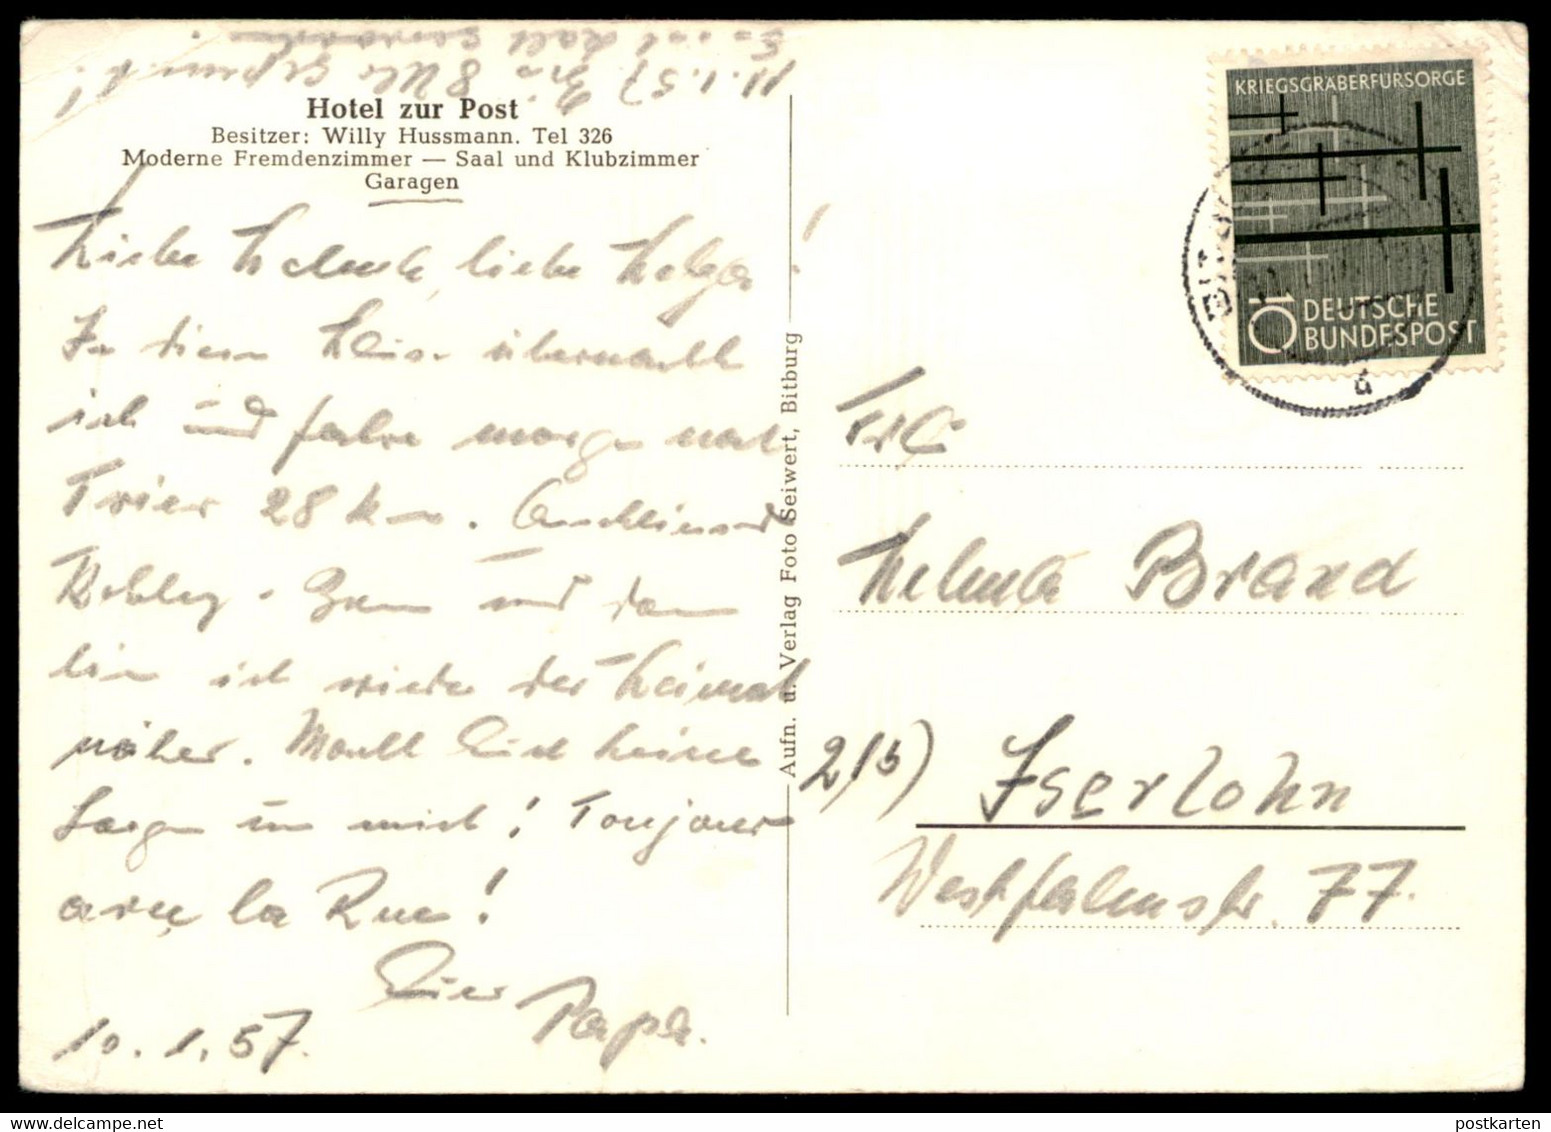 11.1.57. Bin 8 Uhr gesund!
Es ist kalt geworden.
Hotel zur Post
Besitzer: Willy Hussmann. Tel 326
Moderne Fremdenzimmer — Saal und Klubzimmer
Garagen
Liebe Helmute, liebe Helga!
In diesem Haus übernachte
ich und fahre morgen nach
Trier 28 km. Anschliessend
Koblenz - und dann
bin ich wieder der Heimat
näher. Macht Euch keine
Sorgen um mich! Toujours
avec la Rue!
Euer Papa.
10.1.57.
Aufn. u. Verlag Foto Seiwert, Bitburg
KRIEGSGRÄBERFÜRSORGE
10 DEUTSCHE
BUNDESPOST
BITBURG
a
Frl.
Helmute Brand
21b) Iserlohn
Westfalenstr. 77.
postkarten